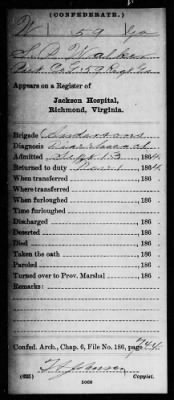 (CONFEDERATE.)
W 59 Ga
Appears on a Register of
Jackson Hospital,
Richmond, Virginia.
Brigade Andersons
Diagnosis
Admitted Sept 13, 1864
Returned to duty Nov 1, 1864
When transferred , 186
Where transferred
When furloughed , 186
Time furloughed
Discharged , 186
Deserted , 186
Died , 186
Taken the oath , 186
Paroled , 186
Turned over to Prov. Marshal , 186
Remarks:
Confed. Arch., Chap. 6, File No. 186, page 244
(635) Copyist.